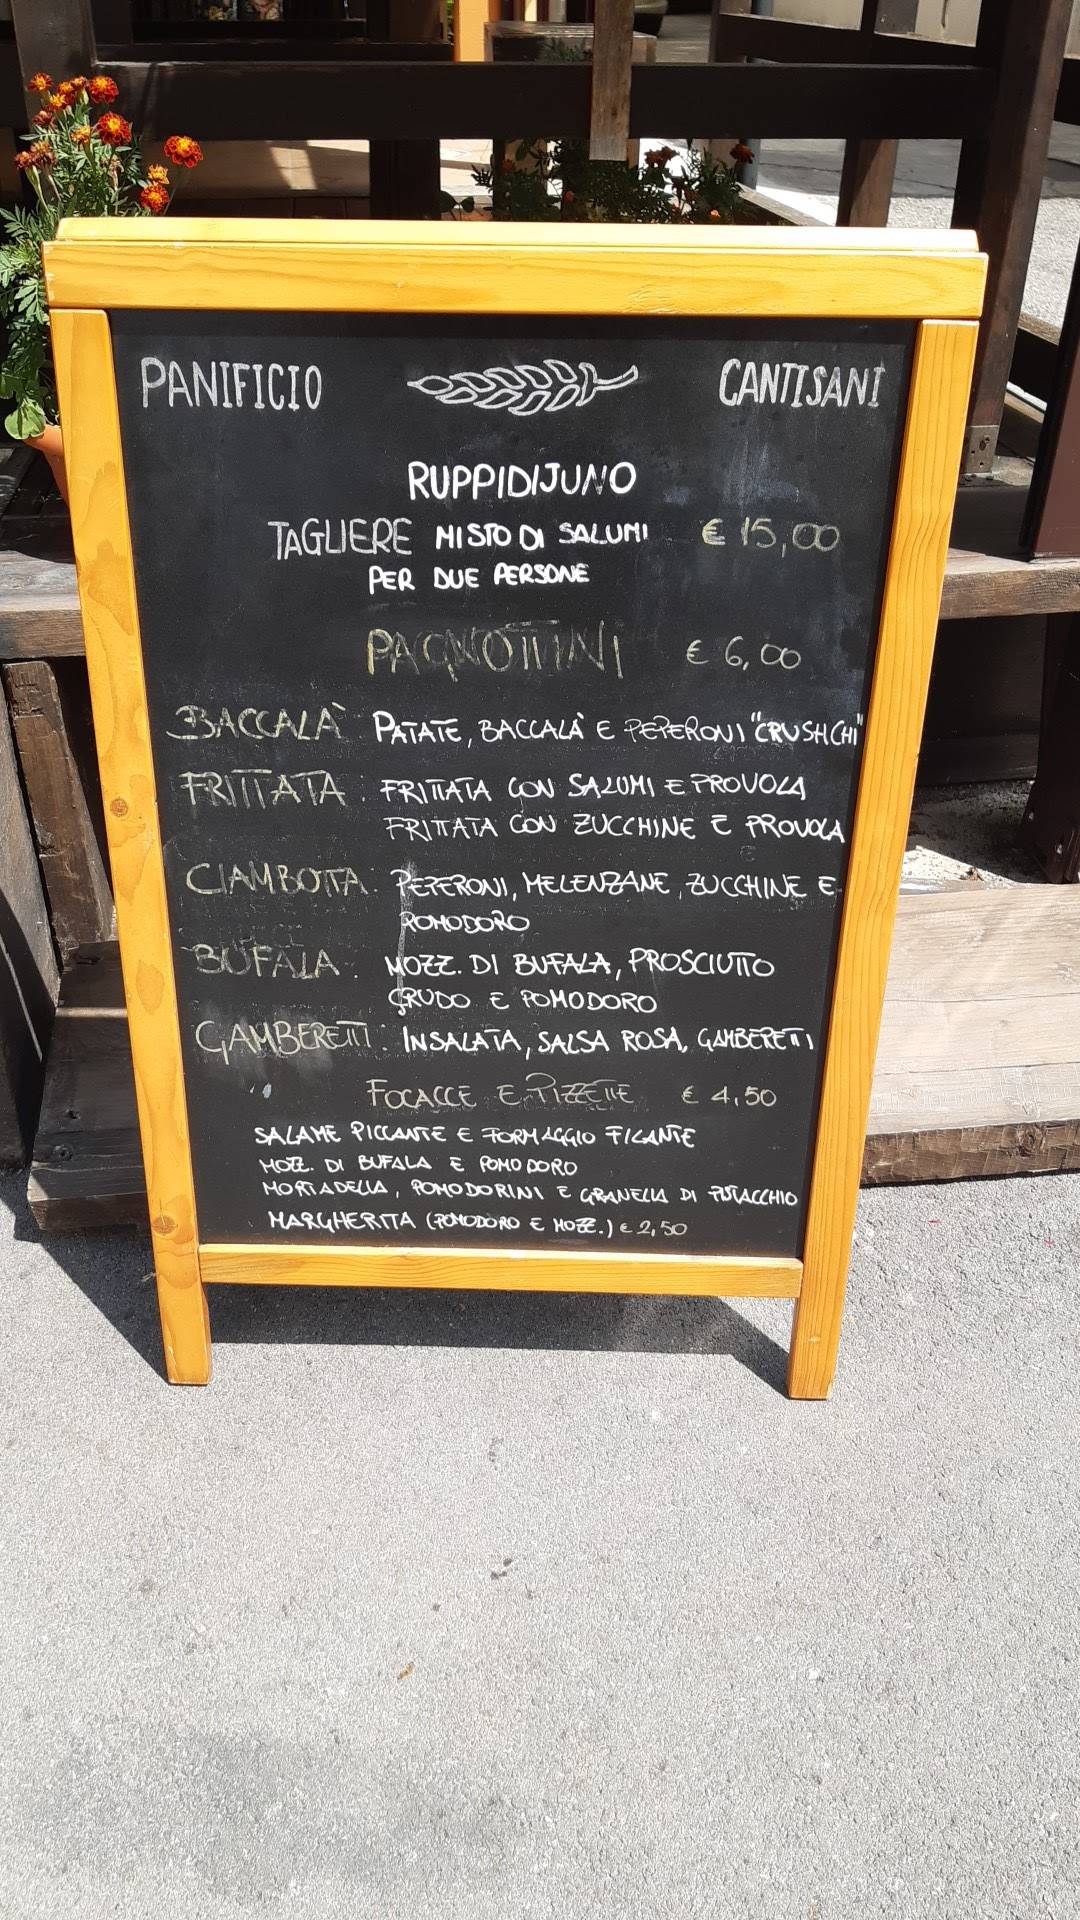 PANIFICIO CANTISANI
RUPPIDIJUNO
TAGLIERE MISTO DI SALUMI € 15,00
PER DUE PERSONE
PAGNOTTINI € 6,00
BACCALÀ: PATATE, BACCALÀ E PEPERONI "CRUSHCHI"
FRITTATA: FRITTATA CON SALUMI E PROVOLA
FRITTATA CON ZUCCHINE E PROVOLA
CIAMBOTTA: PEPERONI, MELENZANE, ZUCCHINE E
POMODORO
BUFALA: MOZZ. DI BUFALA, PROSCIUTTO
CRUDO E POMODORO
GAMBERETTI: INSALATA, SALSA ROSA, GAMBERETTI
FOCACCE E PIZZETTE € 4,50
SALAME PICCANTE E FORMAGGIO FILANTE
MOZZ. DI BUFALA E POMODORO
MORTADELLA, POMODORINI E GRANELLA DI PISTACCHIO
MARGHERITA (POMODORO E MOZZ.) € 2,50